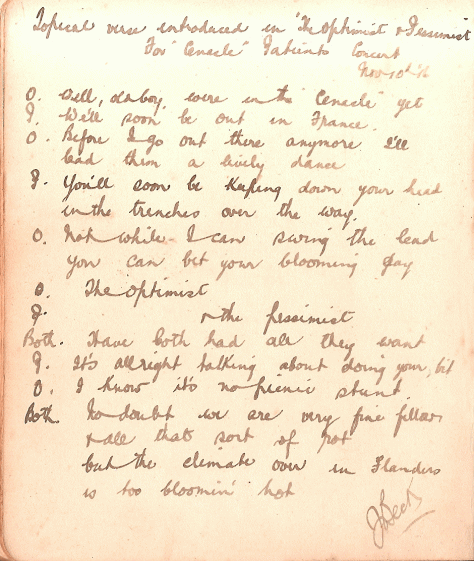 Topical verse introduced in "The Optimist & Pessimist
For "Cenacle" Patients Concert
Nov 10th 16
O. Well, old boy, were in the "Cenacle" yet
P. We'll soon be out in France.
O. Before I go out there anymore I'll
lead them a lively dance
P. You'll soon be keeping down your head
in the trenches over the way.
O. Not while I can swing the lead
you can bet your blooming pay
O. The Optimist
P. & the pessimist
Both. Have both had all they want
P. It's allright talking about doing your bit
O. I know it's no picnic stunt.
Both. No doubt we are very fine fellows
& all that sort of rot
but the climate over in Flanders
is too bloomin' hot
J Beck